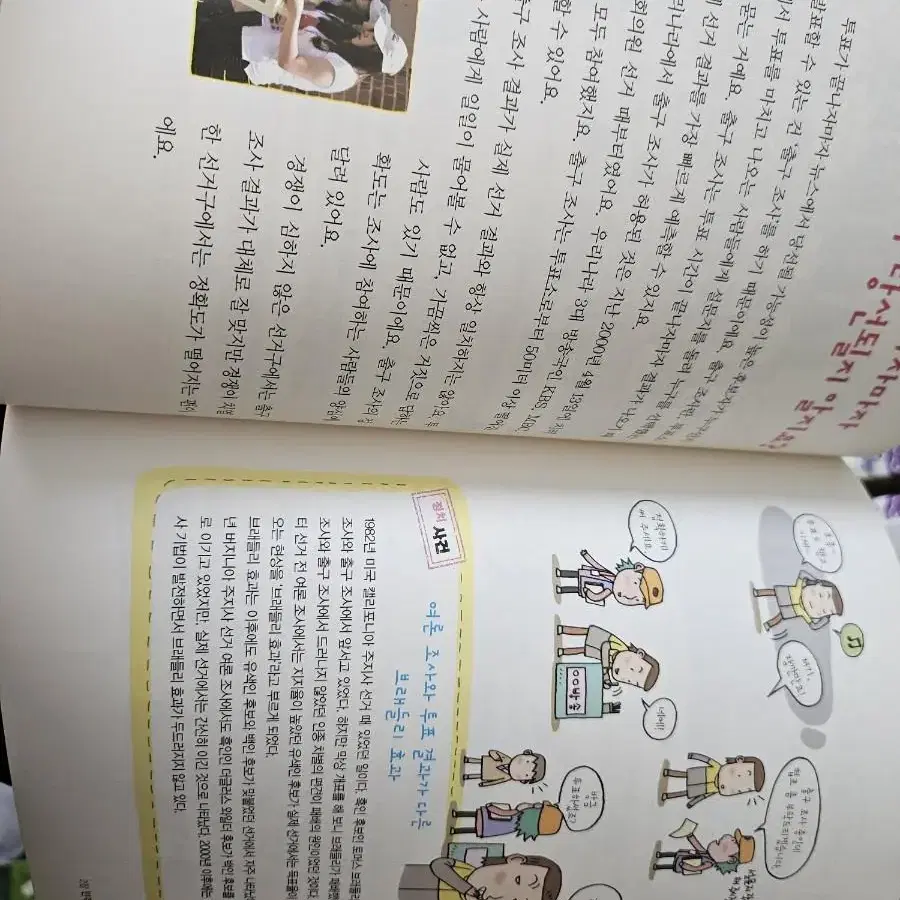 자마자
당선될지 알지요?
투표가 끝나자마자 뉴스에서 당선될 가능성이 높은 후보자가 누구인지
발표할 수 있는 건 '출구 조사'를 하기 때문이에요. 출구 조사란, 투표소
에서 투표를 마치고 나오는 사람들에게 설문지를 돌려 누구를 선택했는지
묻는 거예요. 출구 조사는 투표 시간이 끝나자마자 결과가 나오기 때
선거 결과를 가장 빠르게 예측할 수 있지요.
우리나라에서 출구 조사가 허용된 것은 지난 2000년 4월 13일에
회의원 선거 때부터였어요. 우리나라 3대 방송국인 KBS, MBC,
모두 참여했지요. 출구 조사는 투표소로부터 50미터 이상 떨어진
할 수 있어요.
출구 조사 결과가 실제 선거 결과와 항상 일치하지는 않아요. 모
사람에게 일일이 물어볼 수 없고, 가끔씩은 거짓으로 답하는
사람도 있기 때문이에요. 출구 조사의 정
확도는 조사에 참여하는 사람들의 양심에
달려 있어요.
경쟁이 심하지 않은 선거구에서는 출구
조사 결과가 대체로 잘 맞지만 경쟁이 치열
한 선거구에서는 정확도가 떨어지는 편이
에요.
저기,
잠깐만요!
출구 조사 중인데
협조 좀 부탁드리겠습니다.
정확하게
써 주세요.
네에!!
○○방송
방금
투표하셨죠?
정치 사건
여론 조사와 투표 결과가 다른
브래들리 효과
1982년 미국 캘리포니아 주지사 선거 때 있었던 일이다. 흑인 후보인 토머스 브래들리
조사와 출구 조사에서 앞서고 있었다. 하지만 막상 개표를 해 보니 브래들리가 패배했
조사와 출구 조사에서 드러나지 않았던 인종 차별의 편견이 패배의 원인이었던 것이다.
터 선거 전 여론 조사에서는 지지율이 높았던 유색인 후보가 실제 선거에서는 득표율이
오는 현상을 '브래들리 효과'라고 부르게 되었다.
브래들리 효과는 이후에도 유색인 후보와 백인 후보가 맞붙었던 선거에서 자주 나타났
년 버지니아 주지사 선거 여론 조사에서도 흑인인 더글러스 와일더 후보가 백인 후보를
로 이기고 있었지만, 실제 선거에서는 간신히 이긴 것으로 나타났다. 2000년 이후에는
사 기법이 발전하면서 브래들리 효과가 두드러지지 않고 있다.